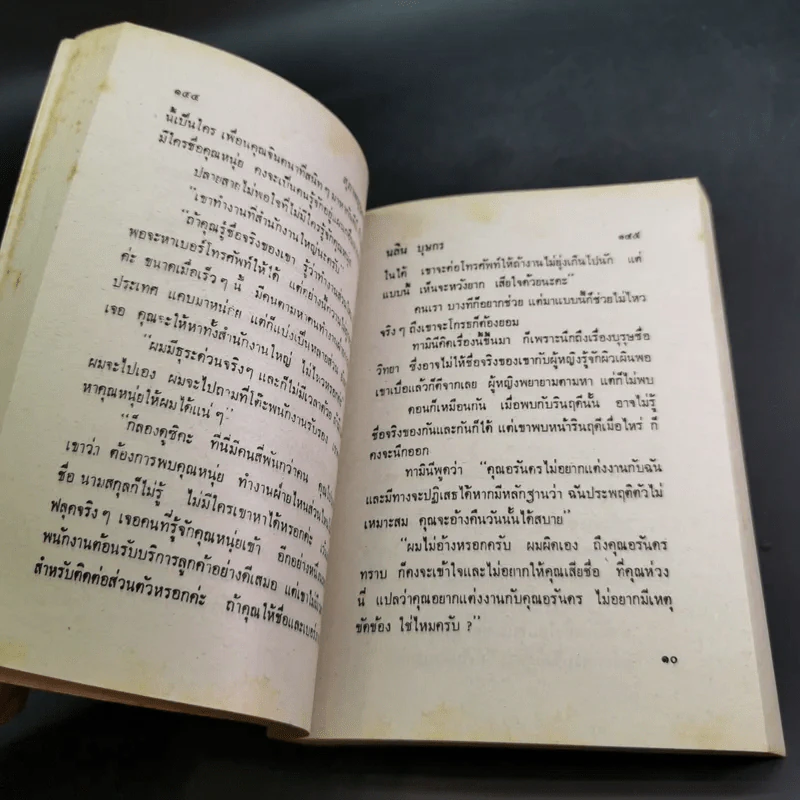 ๑๔๔
นี้เป็นใคร เพื่อนคุณจินตนาที่สนิทๆ
มีใครชื่อคุณหนุ่ย คงจะเป็นคนรู้จัก
ปลายสาดไม่พอใจที่ไม่มีใครรู้จัก
"เขาทำงานที่สำนักงานใหญ่นะครับ"
"ถ้าคุณรู้ชื่อจริงของเขา รู้ว่าทำงาน
พอจะหาเบอร์โทรศัพท์ให้ได้ แต่อย่างนี้
ค่ะ ขนาดเมื่อเร็วๆ นี้ มีคนตามหาคนทำงาน
ประเทศ แคบมาหน่อย แต่ก็แบ่งเป็นหลายส่วน
เจอ คุณจะให้หาทั้งสำนักงานใหญ่ ไม่ไหวหรอก
"ผมมีธุระด่วนจริงๆ และก็ไม่มีเวลาด้วย
ผมจะไปเอง ผมจะไปถามที่โต๊ะพนักงานรับรอง
หาคุณหนุ่ยให้ผมได้แน่ๆ"
"ก็ลองดูซิคะ ที่นี่มีคนสี่พันกว่าคน
เขาว่า ต้องการพบคุณหนุ่ย ทำงานฝ่ายไหนส่วนไหน
ชื่อ นามสกุลก็ไม่รู้ ไม่มีใครเขาหาได้หรอกค่ะ
ฟลุคจริงๆ เจอคนที่รู้จักคุณหนุ่ยเข้า อีกอย่าง
พนักงานต้อนรับบริการลูกค้าอย่างดีเสมอ แต่เขาไม่
สำหรับติดต่อส่วนตัวหรอกค่ะ ถ้าคุณให้ชื่อและเบอร์
นลิน บุษกร ๑๔๕
ไนได้ เขาจะต่อโทรศัพท์ให้ถ้างานไม่ยุ่งเกินไปนัก แต่
แบบนี้ เห็นจะหวังยาก เสียใจด้วยนะคะ"
คนเรา บางทีก็อยากช่วย แต่มาแบบนี้ก็ช่วยไม่ไหว
จริงๆ ถึงเขาจะโกรธก็ต้องยอม
ทามินีคิดเรื่องนี้ขึ้นมา ก็เพราะนึกถึงเรื่องบุรุษชื่อ
วิทยา ซึ่งอาจไม่ให้ชื่อจริงของเขากับผู้หญิงรู้จักผิวเผินพอ
เขาเบื่อแล้วก็ตีจากเลย ผู้หญิงพยายามตามหา แต่ก็ไม่พบ
คอนก็เหมือนกัน เมื่อพบกับรินฤดีนั้น อาจไม่รู้
ชื่อจริงของกันและกันก็ได้ แต่เขาพบหน้ารินฤดีเมื่อไหร่ ก็
คงจะนึกออก
ทามินีพูดว่า "คุณอรันดรไม่อยากแต่งงานกับฉัน
และมีทางจะปฏิเสธได้หากมีหลักฐานว่า ฉันประพฤติตัวไม่
เหมาะสม คุณจะอ้างคืนวันนั้นได้สบาย"
"ผมไม่อ้างหรอกครับ ผมผิดเอง ถึงคุณอรันดร
ทราบ ก็คงจะเข้าใจและไม่อยากให้คุณเสียชื่อ ที่คุณห่วง
นี่ แปลว่าคุณอยากแต่งงานกับคุณอรันดร ไม่อยากมีเหตุ
ขัดข้อง ใช่ไหมครับ ?"
๑๐